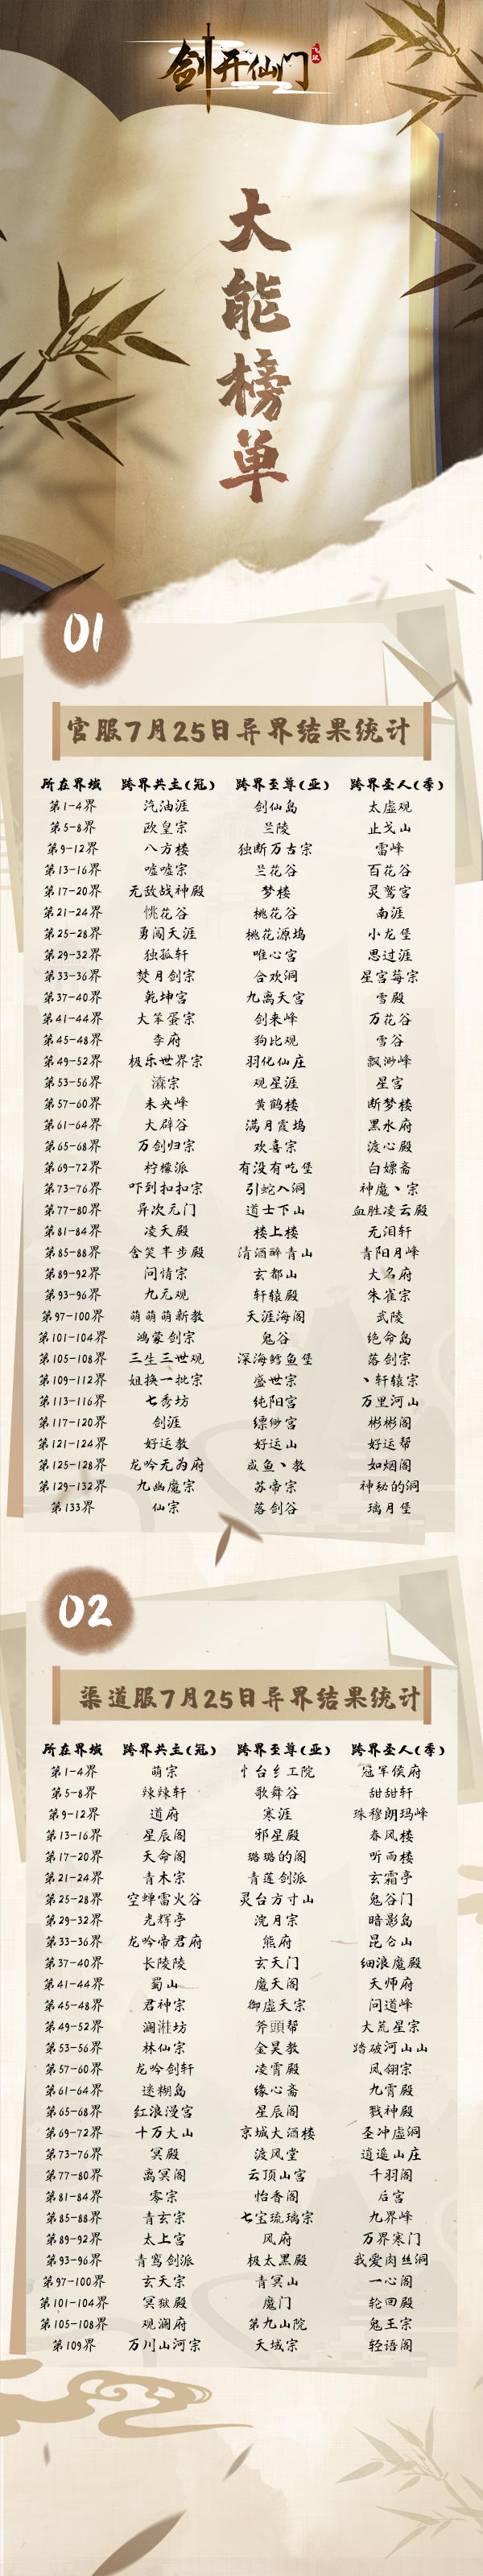 剑开仙门
飞升
大能榜单
01
官服7月25日异界结果统计
所在界域 跨界共主(冠) 跨界至尊(亚) 跨界圣人(季)
第1-4界 汽油涯 剑仙岛 太虚观
第5-8界 欧皇宗 兰陵 止戈山
第9-12界 八方楼 独断万古宗 雷峰
第13-16界 嘘嘘宗 兰花谷 百花谷
第17-20界 无敌战神殿 梦楼 灵鹫宫
第21-24界 恌花谷 桃花谷 南涯
第25-28界 勇闯天涯 桃花源坞 小龙堡
第29-32界 独孤轩 唯心宫 思过涯
第33-36界 焚月剑宗 合欢洞 星宫莓宗
第37-40界 乾坤宫 九离天宫 雪殿
第41-44界 大笨蛋宗 剑来峰 万花谷
第45-48界 李府 狗比观 雪谷
第49-52界 极乐世界宗 羽化仙庄 飘渺峰
第53-56界 溹宗 观星涯 星宫
第57-60界 未央峰 黄鹤楼 断梦楼
第61-64界 大辟谷 满月霞坞 黑水府
第65-68界 万剑归宗 欢喜宗 渡心殿
第69-72界 柠檬派 有没有吃堡 白嫖斋
第73-76界 吓到扣扣宗 引蛇入洞 神魔丶宗
第77-80界 异次元门 道士下山 血胜凌云殿
第81-84界 凌天殿 楼上楼 无泪轩
第85-88界 含笑半步殿 清酒醉青山 青阳月峰
第89-92界 问情宗 玄都山 大名府
第93-96界 九元观 轩辕殿 朱雀宗
第97-100界 萌萌萌新教 天涯海阁 武陵
第101-104界 鸿蒙剑宗 鬼谷 绝命岛
第105-108界 三生三世观 深海鳕鱼堡 落剑宗
第109-112界 姐换一批宗 盛世宗 丶轩辕宗
第113-116界 七秀坊 纯阳宫 万里河山
第117-120界 剑涯 缥缈宫 彬彬阁
第121-124界 好运教 好运山 好运帮
第125-128界 龙吟无为府 咸鱼丶教 如烟阁
第129-132界 九幽魔宗 苏帝宗 神秘的洞
第133界 仙宗 落剑谷 璃月堡
02
渠道服7月25日异界结果统计
所在界域 跨界共主(冠) 跨界至尊(亚) 跨界圣人(季)
第1-4界 萌宗 忄台纟工院 冠军侯府
第5-8界 辣辣轩 歌舞谷 甜甜轩
第9-12界 道府 寒涯 珠穆朗玛峰
第13-16界 星辰阁 邪星殿 春风楼
第17-20界 天命阁 璐璐的阁 听雨楼
第21-24界 青木宗 青莲剑派 玄霜亭
第25-28界 空蝉雷火谷 灵台方寸山 鬼谷门
第29-32界 光辉亭 浣月宗 暗影岛
第33-36界 龙吟帝君府 熊府 昆仑山
第37-40界 长陵陵 玄天门 细浪魔殿
第41-44界 蜀山 魔天阁 天师府
第45-48界 君神宗 御虚天宗 问道峰
第49-52界 澜溎坊 斧頭帮 大荒星宗
第53-56界 林仙宗 金昊教 踏破河山山
第57-60界 龙吟剑轩 凌霄殿 风翎宗
第61-64界 迷糊岛 缘心斋 九霄殿
第65-68界 红浪漫宫 星辰阁 戮神殿
第69-72界 十万大山 京城大酒楼 圣冲虚洞
第73-76界 冥殿 渡风堂 逍遥山庄
第77-80界 离冥阁 云顶山宫 千羽阁
第81-84界 零宗 怡香阁 后宫
第85-88界 青玄宗 七宝琉璃宗 九界峰
第89-92界 太上宫 风府 万界寒门
第93-96界 青鸾剑派 极太黑殿 我爱肉丝洞
第97-100界 玄天宗 青冥山 一心阁
第101-104界 冥狱殿 魔门 轮回殿
第105-108界 观澜府 第九山院 鬼王宗
第109界 万川山河宗 天域宗 轻语阁